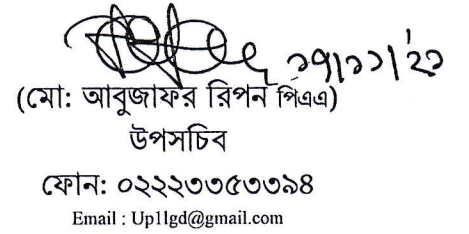 ২৭/১১/'২২
(মো: আবুজাফর রিপন পিএএ)
উপসচিব
ফোন: ০২২২৩৩৫৩৩৯৪
Email : Up1lgd@gmail.com